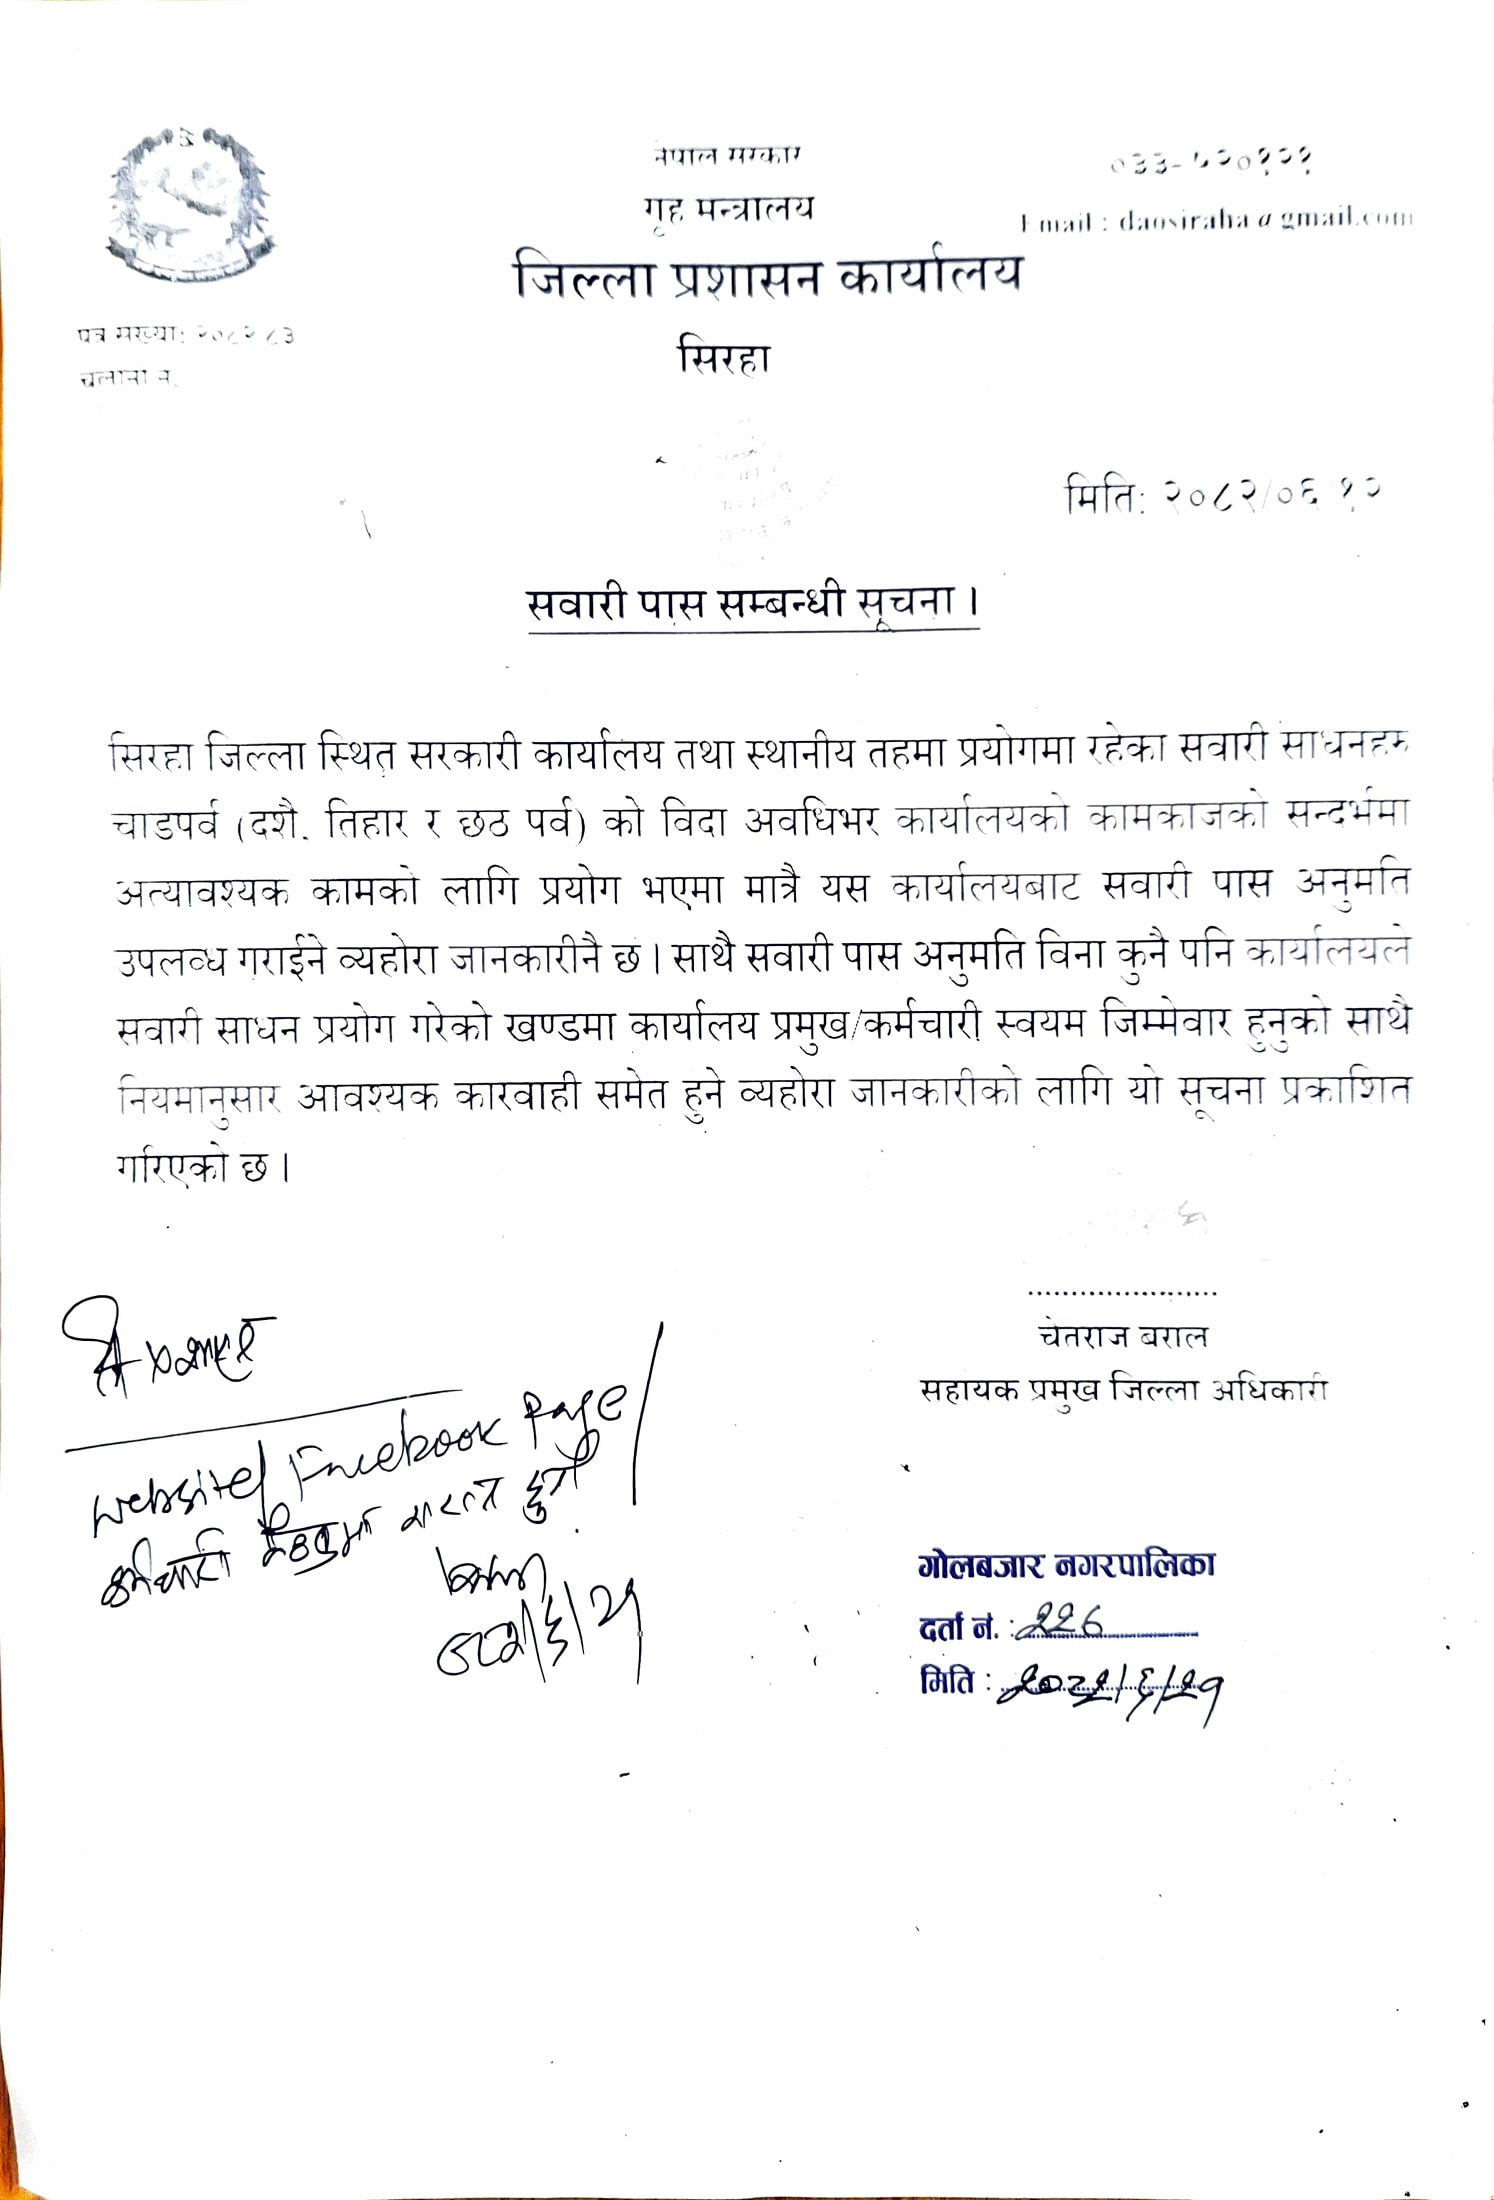 नेपाल सरकार
गृह मन्त्रालय
जिल्ला प्रशासन कार्यालय
सिरहा
०३३-५२०१२१
Email : daosiraha@gmail.com
पत्र संख्या: २०८२ ८३
चलानी नं.
मिति: २०८२/०६ १२
सवारी पास सम्बन्धी सूचना ।
सिरहा जिल्ला स्थित सरकारी कार्यालय तथा स्थानीय तहमा प्रयोगमा रहेका सवारी साधनहरु
चाडपर्व (दशै. तिहार र छठ पर्व) को विदा अवधिभर कार्यालयको कामकाजको सन्दर्भमा
अत्यावश्यक कामको लागि प्रयोग भएमा मात्रै यस कार्यालयबाट सवारी पास अनुमति
उपलव्ध गराईने व्यहोरा जानकारीनै छ । साथै सवारी पास अनुमति विना कुनै पनि कार्यालयले
सवारी साधन प्रयोग गरेको खण्डमा कार्यालय प्रमुख/कर्मचारी स्वयम जिम्मेवार हुनुको साथै
नियमानुसार आवश्यक कारवाही समेत हुने व्यहोरा जानकारीको लागि यो सूचना प्रकाशित
गरिएको छ ।
चेतराज बराल
सहायक प्रमुख जिल्ला अधिकारी
website/ Facebook Page/
कर्मचारी
गोलबजार नगरपालिका
दर्ता नं. : 226
मिति : २०८२/६/२१